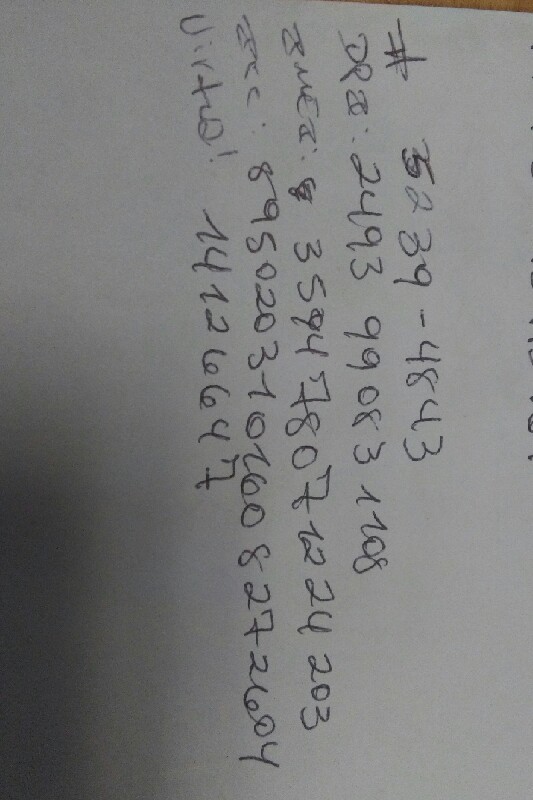 # 5239-4843
DPI: 2493 99083 1108
IMEI: 359478071224203
ICC: 89502031016008272604
Virtual: 14126647